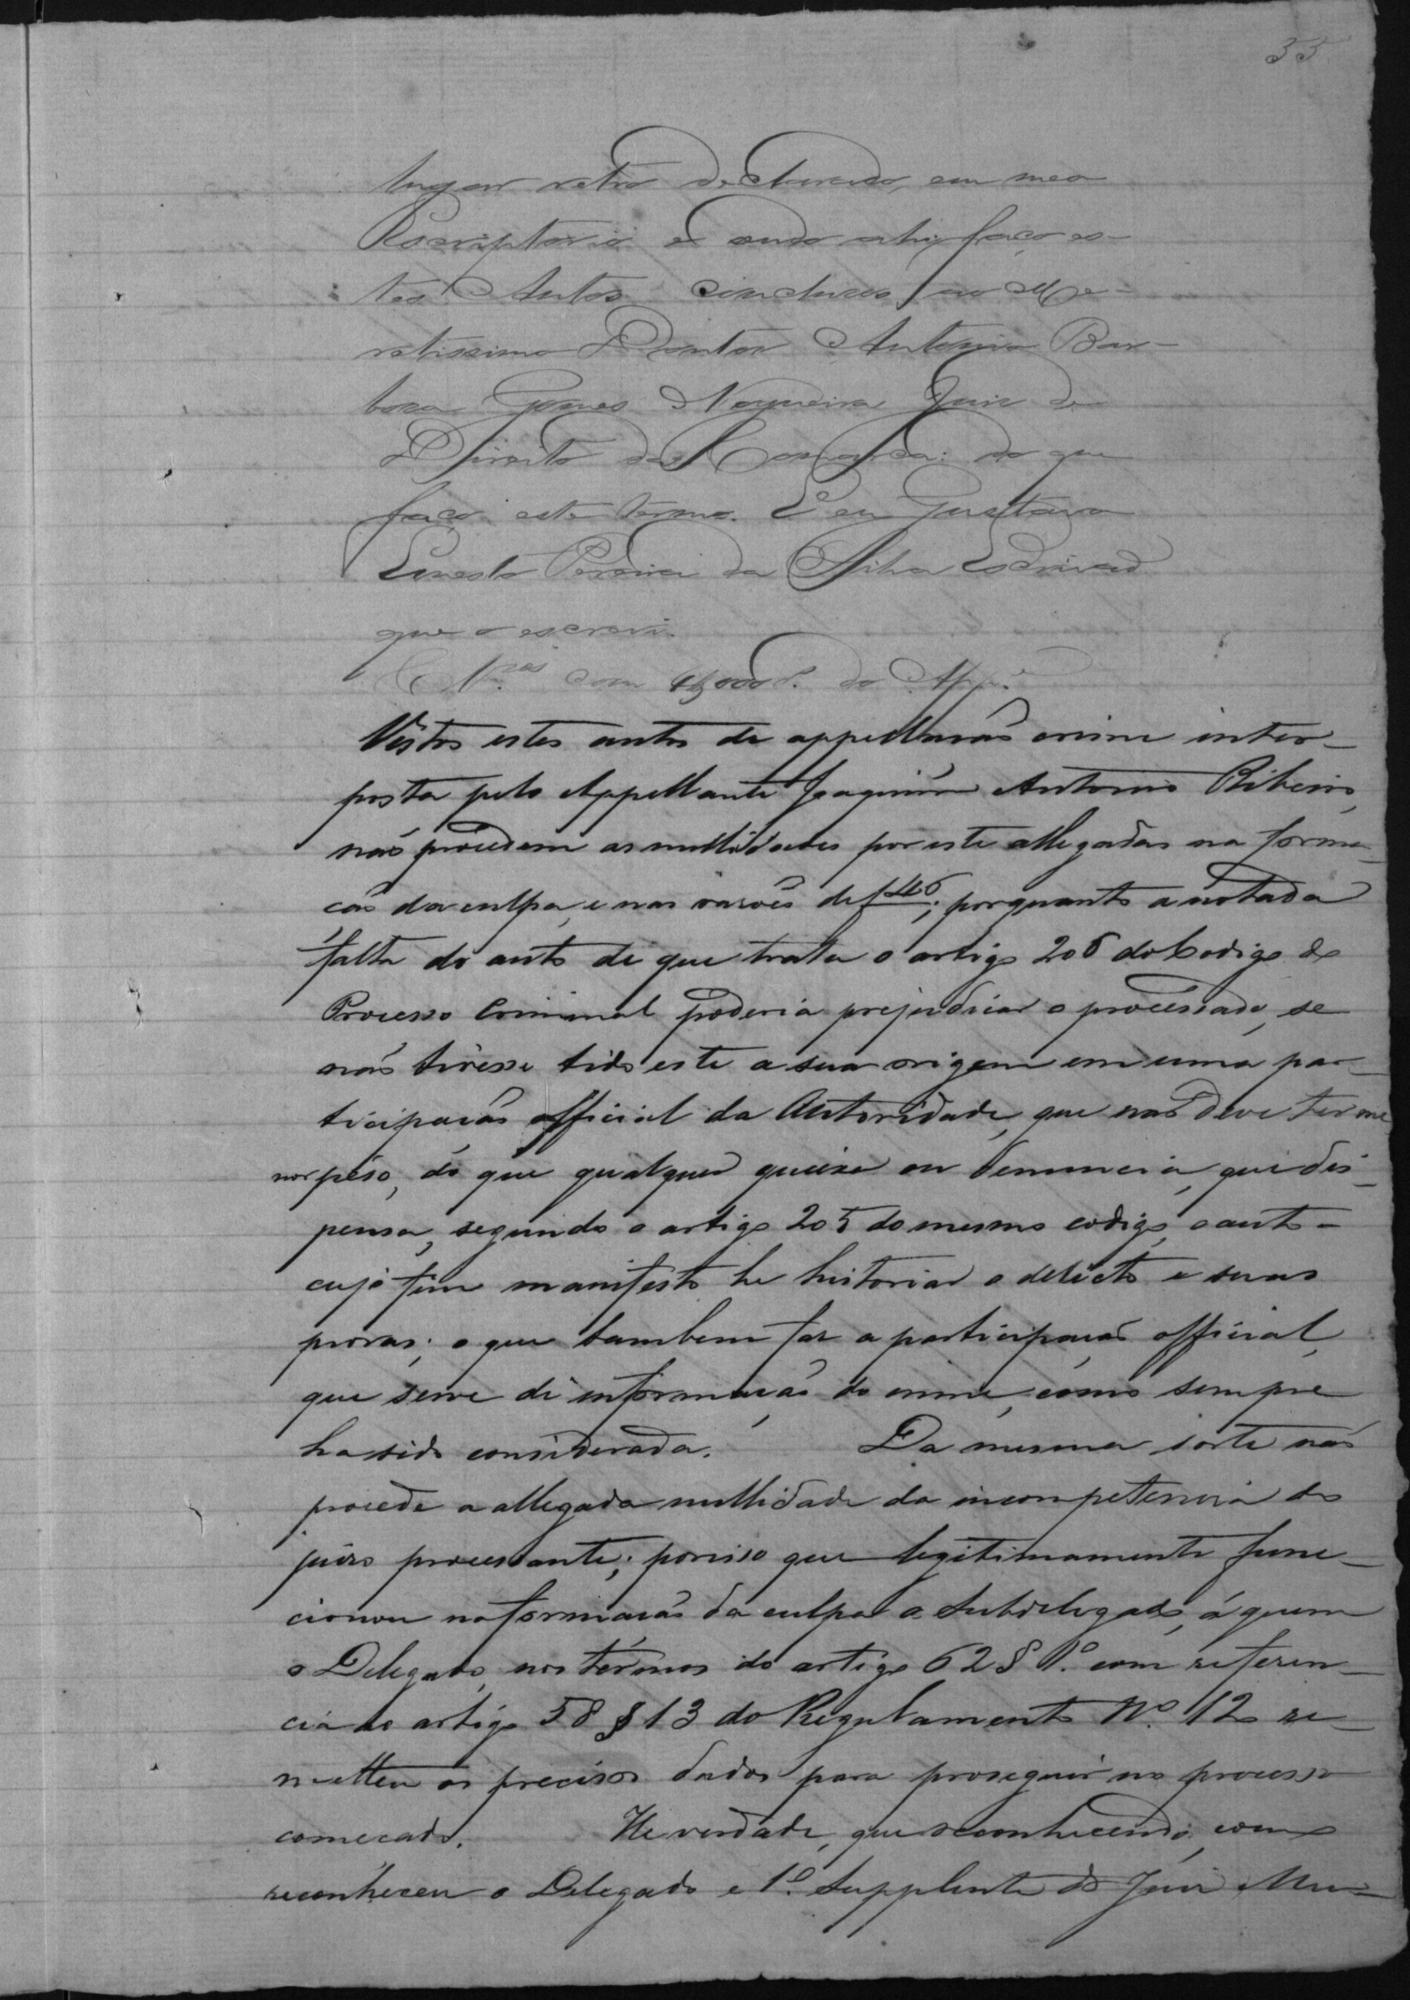 55
lugar retro declarado, em meo
Escriptorio e sendo ahi faço es-
tes Autos conclusos ao Me-
retissimo Doutor Antonio Bar-
boza Gomes Nogueira Juiz de
Direito da Comarca: do que
faço este termo. E eu Gustavo
Ernesto Pereira da Silva Escrivaõ
que o escrevi.
Cls.ºs com do App.e
Vistos estes autos de appellaçaõ crime inter-
posta pelo Appellante Joaquim Antonio Ribeiro,
naõ procedem as nullidades por este allegadas na forma-
çaõ da culpa, e nas rasoẽs de f 46; porquanto a notada
falta do auto de que trata o artigo 206 do Codigo do
Processo Criminal poderia prejudicar o processado, se
naõ tivesse tido este a sua origem em uma par-
ticipaçaõ official da Autoridade, que naõ deve ter me
nor pêso, do que qualquer queixa ou denuncia, que dis-
pensa, segundo o artigo 205 do mesmo codigo, o auto-
cujo fim manifesto he historiar o delicto e suas
provas; o que tambem faz a participaçaõ official,
que serve de informaçaõ do crime, como sempre
ha sido considerada. Da mesma sorte naõ
procede a allegada nullidade da incompetencia do
juizo processante; porisso que legitimamente func-
cionou na formaçaõ da culpa o Subdelegado, á quem
o Delegado, nos termos do artigo 62 § 1.º com referen-
cia ao artigo 58 § 13 do Regulamento N.º 120 re-
metteu os precisos dados para proseguir no processo
começado. He verdade, que reconhecendo, como
reconheceu o Delegado e 1.º Supplente do Juiz Mu-